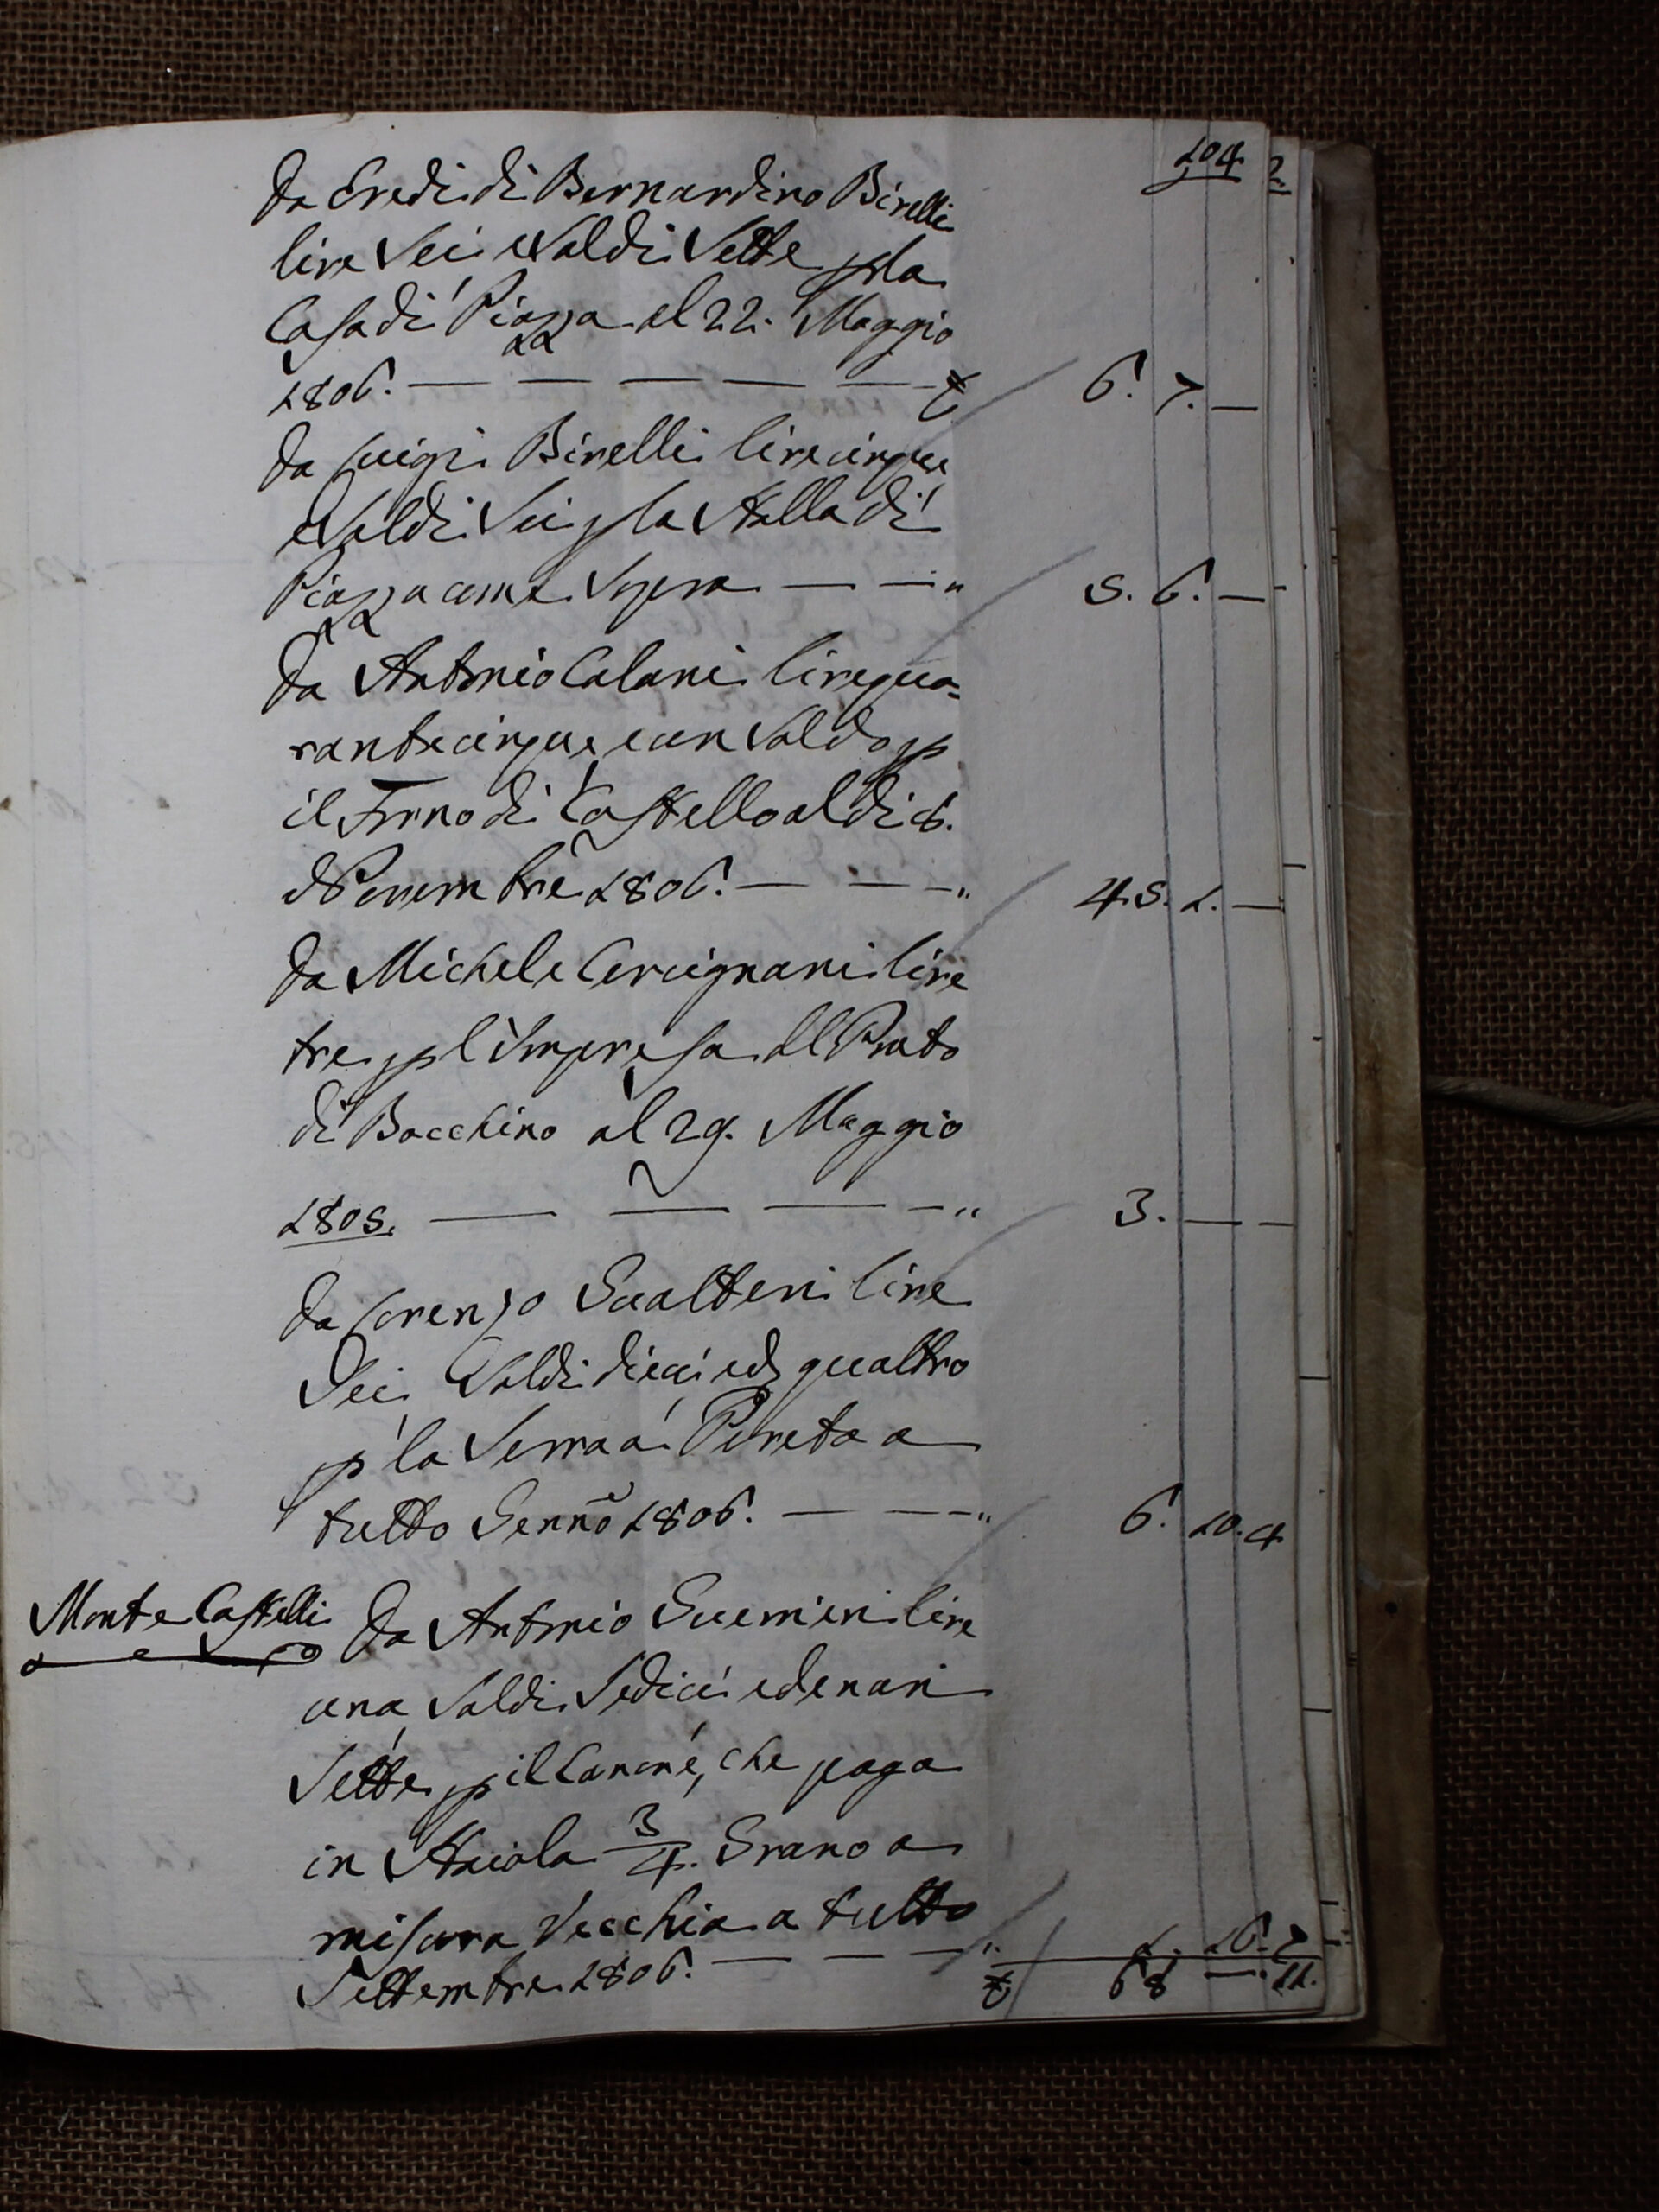 104
Da Eredi di Bernardino Birelli
lire Sei e Soldi Sette p la
Casa di Piazza al 22. Maggio
1806. — — — — — £ 6. 7. —
Da Luigi Birelli lire cinque
e Soldi Sei p la Stalla di
Piazza come Sopra — — " 5. 6. —
Da Antonio Calani lire qua=
rantacinque e un Soldo p
il Forno di Castello al di 6.
Novembre 1806. — — — " 45. 1. —
Da Michele Cercignani lire
tre p l'Impresa del Prato
di Bocchino al 29. Maggio
1805. — — — — " 3. — —
Da Lorenzo Gualtieri lire
Sei Soldi dieci e d. quattro
p la Serra a Pireta a
tutto Gennō 1806. — — — " 6. 10. 4
Monte Castelli Da Antonio Guerrieri lire
una Soldi Sedici e denari
Sette p il Canone, che paga
in Staiola 3/4. Grano a
misura Vecchia a tutto
Settembre 1806. — — — " 1. 16. 7
£ 68 —. 11.